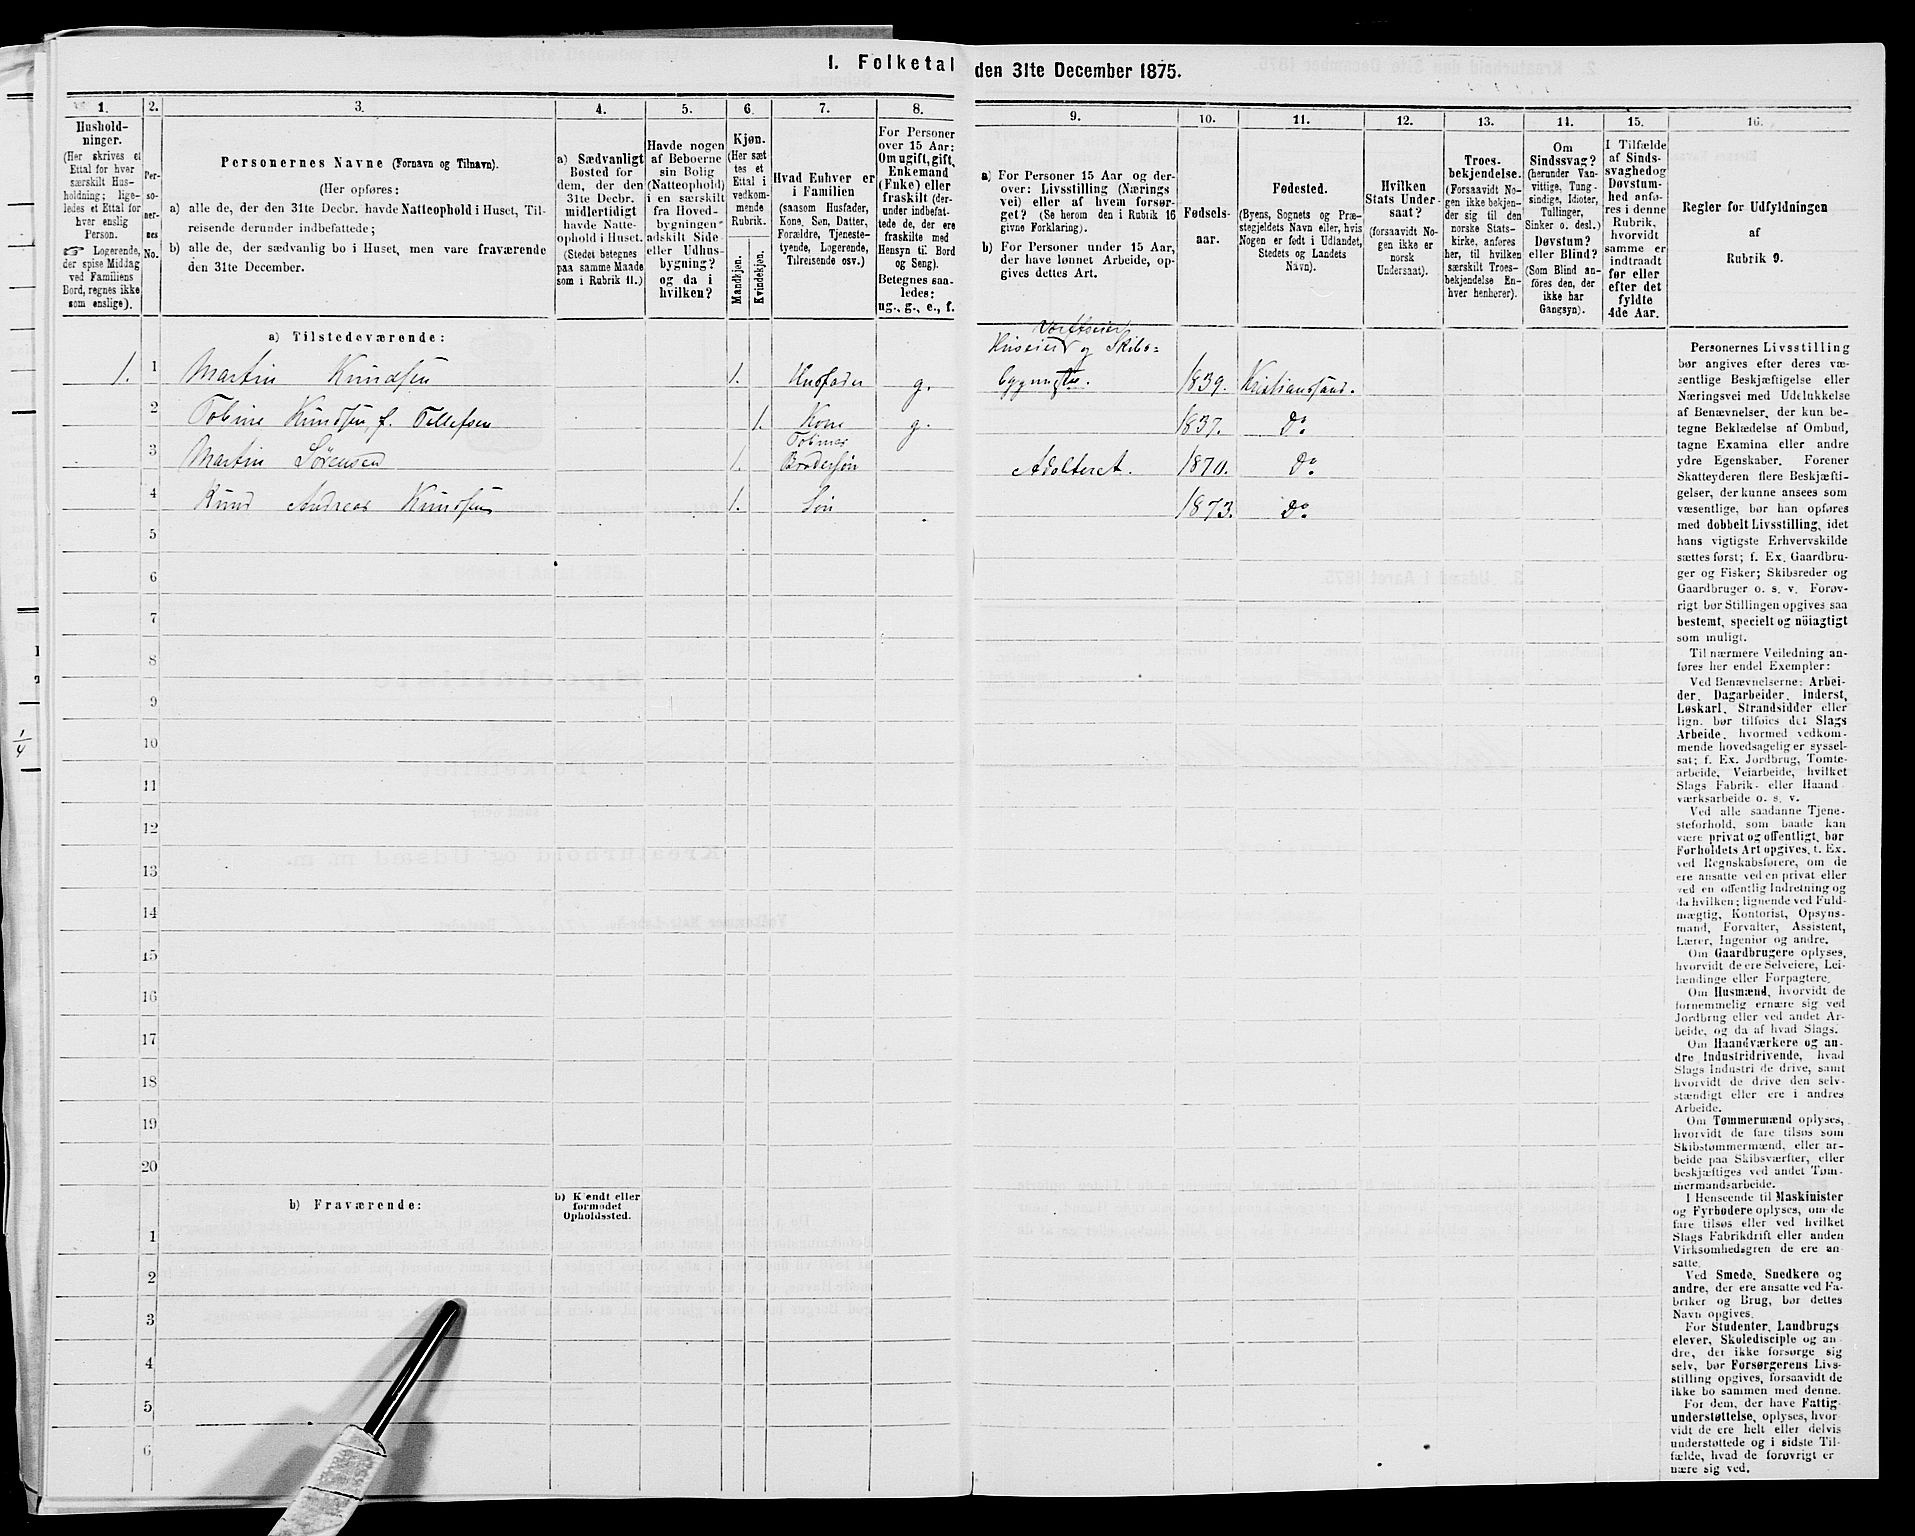 I. Folketal den 31te December 1875.
1.
Hushold-
ninger.
(Her skrives et
Ettal for hver
særskilt Hus-
holdning; lige-
ledes et Ettal for
hver enslig
Person.
☞ Logerende,
der spise Middag
ved Familiens
Bord, regnes ikke
som enslige).
2.
Per-
so-
ner-
nes
No.
3.
Personernes Navne (Fornavn og Tilnavn).
(Her opføres:
a) alle de, der den 31te Decbr. havde Natteophold i Huset, Til-
reisende derunder indbefattede;
b) alle de, der sædvanlig bo i Huset, men vare fraværende
den 31te December.
4.
a) Sædvanligt
Bosted for
dem, der den
31te Decbr.
midlertidigt
havde Natte-
ophold i Huset.
(Stedet betegnes
paa samme Maade
som i Rubrik 11.)
5.
Havde nogen
af Beboerne
sin Bolig
(Natteophold)
i en særskilt
fra Hoved-
bygningen
adskilt Side-
eller Udhus-
bygning?
og da i
hvilken?
6.
Kjøn.
(Her sæt
tes et
Ettal i
vedkom-
mende
Rubrik.
Mandkjøn.
Kvindekjøn.
7.
Hvad Enhver er
i Familien
(saasom Husfader,
Kone, Søn, Datter,
Forældre, Tjeneste-
tyende, Logerende,
Tilreisende osv.)
8.
For Personer
over 15 Aar:
Om ugift, gift,
Enkemand
(Enke) eller
fraskilt (der-
under indbefat-
tede de, der ere
fraskilte med
Hensyn til Bord
og Seng).
Betegnes saa-
ledes:
ug., g., e., f.
9.
a) For Personer 15 Aar og der-
over: Livsstilling (Nærings
vei) eller af hvem forsør-
get? (Se herom den i Rubrik 16
givne Forklaring).
b) For Personer under 15 Aar,
der have lønnet Arbeide, op-
gives dettes Art.
10.
Fødsels-
aar.
11.
Fødested.
(Byens, Sognets og Præ-
stegjeldets Navn eller, hvis
Nogen er født i Udlandet,
Stedets og Landets
Navn).
12.
Hvilken
Stats Under-
saat?
(forsaavidt No-
gen ikke er
norsk
Undersaat).
13.
Troes-
bekjendelse.
(Forsaavidt No-
gen ikke bekjen-
der sig til den
norske Stats-
kirke, anføres
her, til hvilken
særskilt Troes-
bekjendelse En-
hver henhører).
14.
Om
Sindssvag?
(herunder Van-
vittige, Tung-
sindige, Idioter,
Tullinger,
Sinker o. desl.)
Døvstum?
eller Blind?
(Som Blind an-
føres den, der
ikke har
Gangsyn).
15.
I Tilfælde
af Sinds-
svaghed og
Døvstum-
hed anfø-
res i denne
Rubrik,
hvorvidt
samme er
indtraadt
før eller
efter det
fyldte
4de Aar.
16.
Regler for Udfyldningen
af
Rubrik 9.
a) Tilstedeværende:
Værfteier
Huseier og Skibs-
1. 1 Martin Knudsen 1. Husfader g. bygmester. 1839. Kristianssand.
2 Tobine Knudsen, f. Tellefsen 1. Kone g. 1837. Do
Tobines
3 Martin Sørensen 1. Brodersøn Adopteret. 1870. Do
4 Knud Andreas Knudsen 1. Søn 1873. Do
5
6
7
8
9
10
11
12
13
14
15
16
17
18
19
20
b) Fraværende:
b) Kjendt eller
formodet
Opholdssted.
1
2
3
4
5
6
Personernes Livsstilling
bør angives efter deres væ-
sentlige Beskjæftigelse eller
Næringsvei med Udelukkelse
af Benævnelser, der kun be-
tegne Beklædelse af Ombud,
tagne Examina eller andre
ydre Egenskaber. Forener
Skatteyderen flere Beskjæfti-
gelser, der kunne ansees som
væsentlige, bør han opføres
med dobbelt Livsstilling, idet
hans vigtigste Erhvervskilde
sættes først; f. Ex. Gaardbru-
ger og Fisker; Skibsreder og
Gaardbruger o. s. v. Forøv-
rigt bør Stillingen opgives saa
bestemt, specielt og nöiagtigt
som muligt.
Til nærmere Veiledning an-
føres her endel Exempler:
Ved Benævnelserne: Arbei-
der, Dagarbeider, Inderst,
Løskarl, Strandsidder eller
lign. bør tilføies det Slags
Arbeide, hvormed vedkom-
mende hovedsagelig er syssel-
sat; f. Ex. Jordbrug, Tomte-
arbeide, Veiarbeide, hvilket
Slags Fabrik- eller Haand
værksarbeide o. s. v.
Ved alle saadanne Tjene-
steforhold, som baade kan
være privat og offentligt, bør
Forholdets Art opgives, f. Ex.
ved Regnskabsførere, om de
ere ansatte ved en privat eller
ved en offentlig Indretning og
da hvilken; lignende ved Fuld-
mægtig, Kontorist, Opsyns-
mand, Forvalter, Assistent,
Lærer, Ingeniør og andre.
Om Gaardbrugere oplyses,
hvorvidt de ere Selveiere, Lei-
lændinge eller Forpagtere.
Om Husmænd, hvorvidt de
fornemmelig ernære sig ved
Jordbrug eller ved andet Ar-
beide, og da af hvad Slags.
Om Haandværkere og an-
dre Industridrivende, hvad
Slags Industri de drive, samt
hvorvidt de drive den selv-
stændigt eller ere i andres
Arbeide.
Om Tømmermænd oplyses,
hvorvidt de fare tilsøs som
Skibstømmermænd, eller ar-
beide paa Skibsværfter, eller
beskjæftiges ved andet Tøm-
mermandsarbeide.
I Henseende til Maskinister
og Fyrbødere oplyses, om de
fare tilsøs eller ved hvilket
Slags Fabrikdrift eller anden
Virksomhedsgren de ere an-
satte.
Ved Smede, Snedkere og
andre, der ere ansatte ved Fa-
briker og Brug, bør dettes
Navn opgives.
For Studenter, Landbrugs
elever, Skoledisciple og an-
dre, der ikke forsørge sig
selv, bør Forsørgerens Livs-
stilling opgives, forsaavidt de
ikke bo sammen med denne.
For dem, der have Fattig
understøttelse, oplyses, hvor-
vidt de ere helt eller delvis
understøttede og i sidste Til-
fælde, hvad de forøvrigt er
nære sig ved.